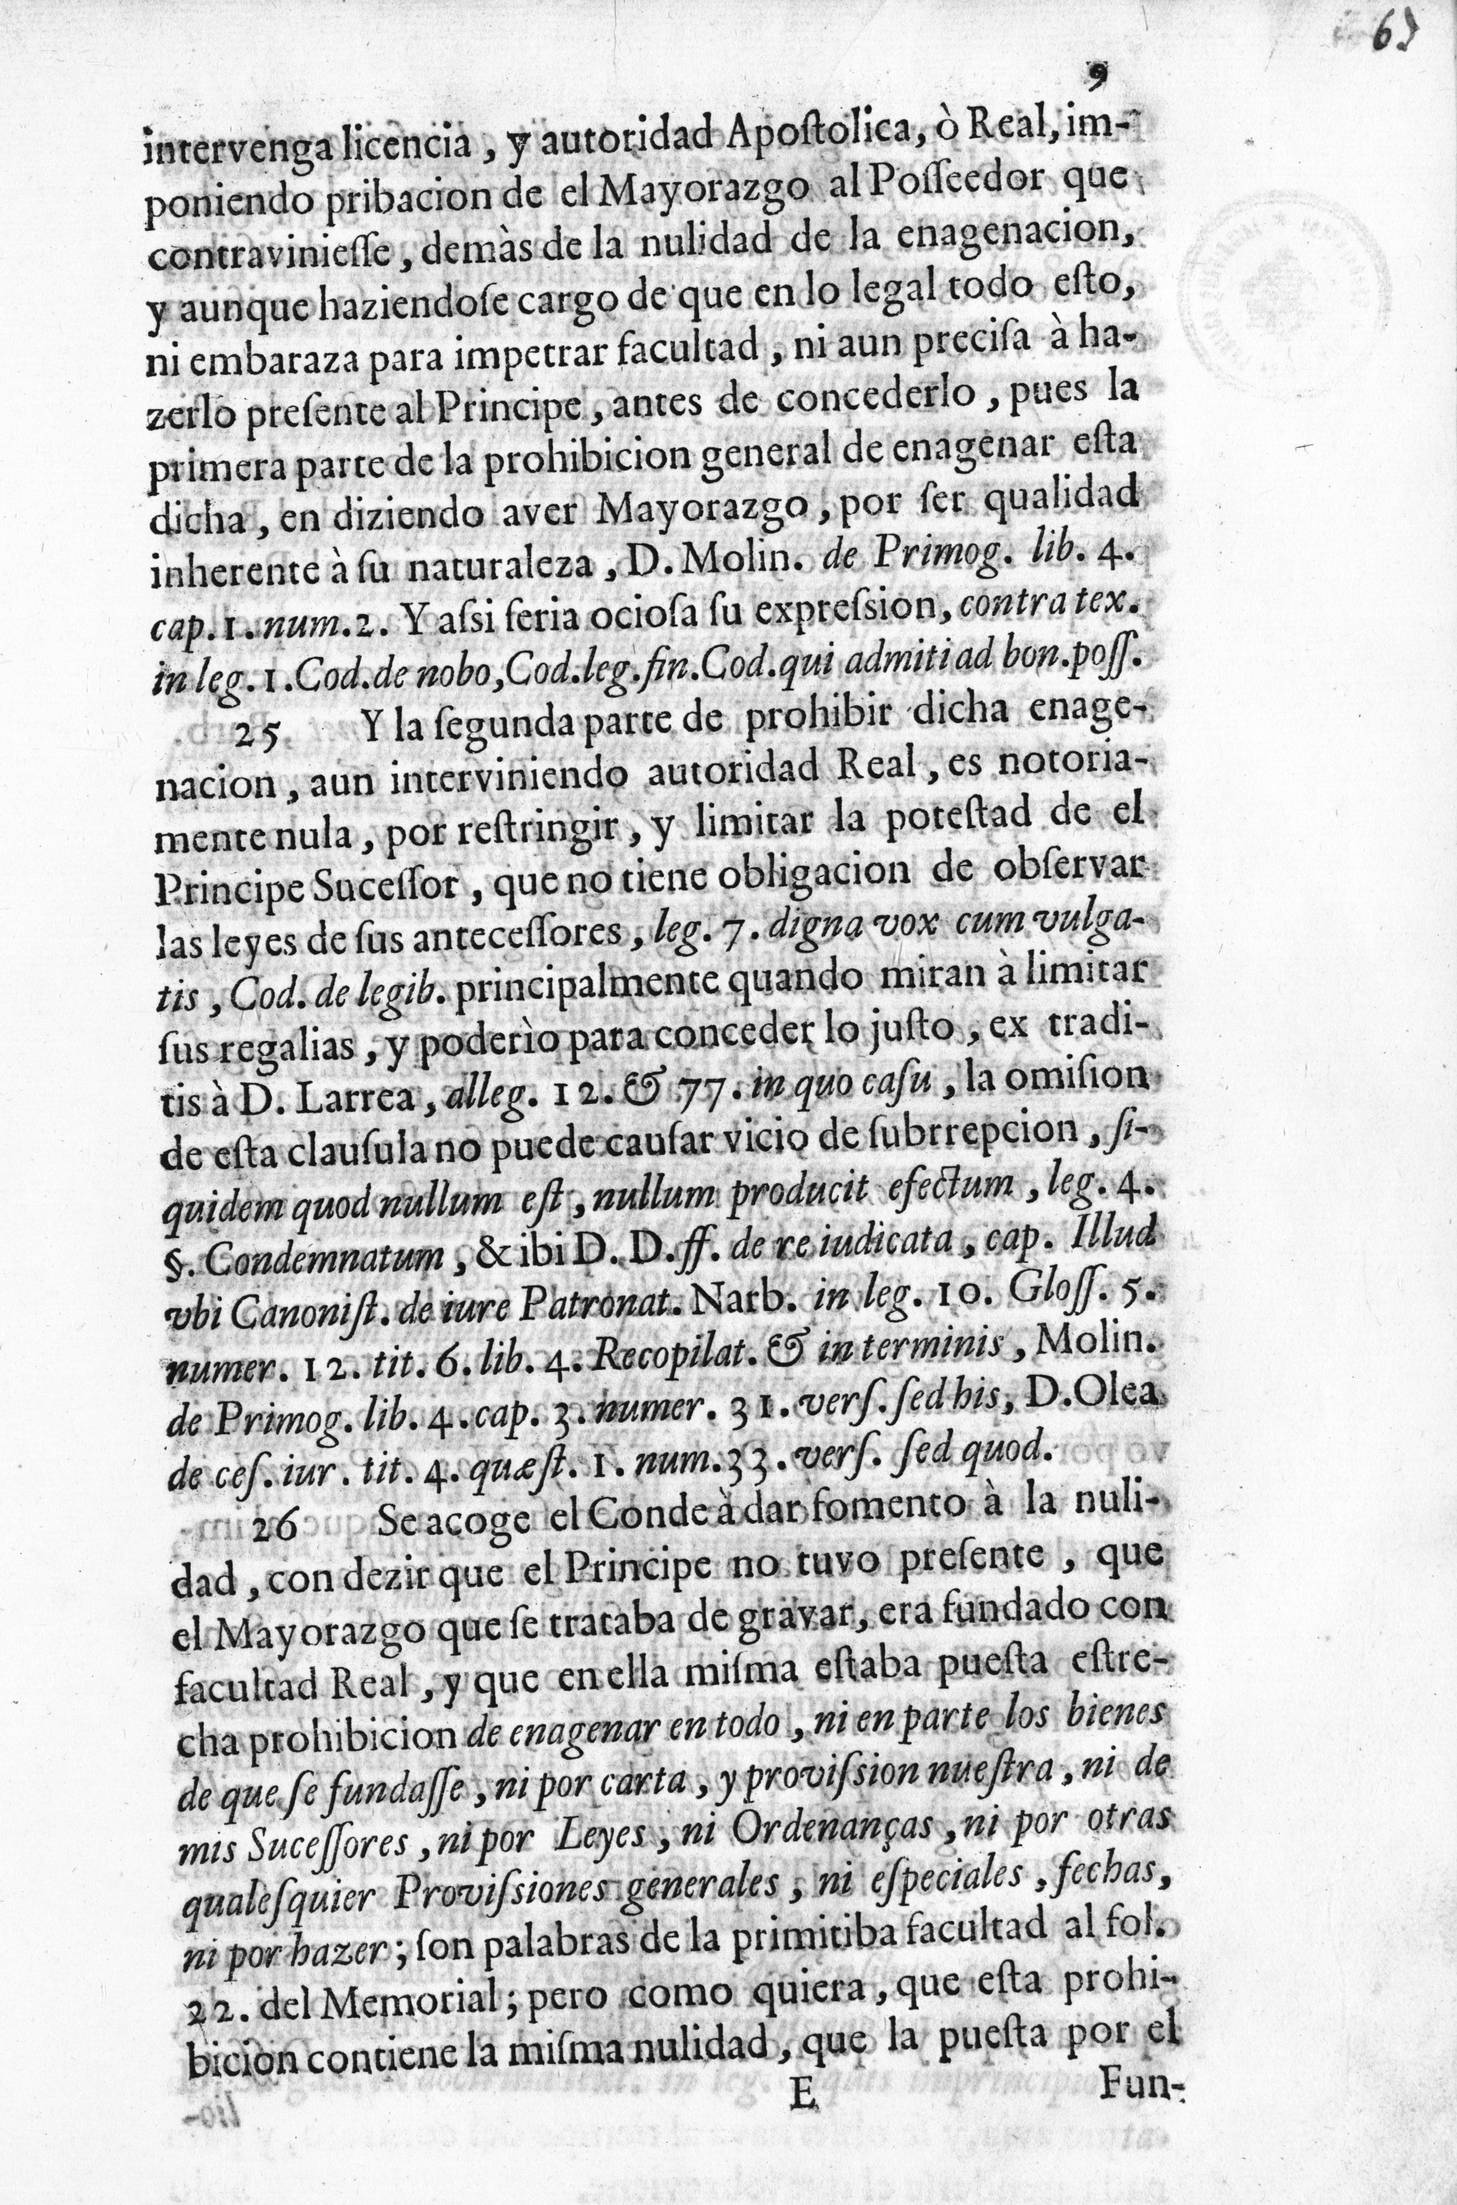 9
intervenga licencia, y autoridad Apoſtolica, ò Real, im-
poniendo pribacion de el Mayorazgo al Poſſeedor que
contravinieſſe, demàs de la nulidad de la enagenacion,
y aunque haziendoſe cargo de que en lo legal todo eſto,
ni embaraza para impetrar facultad, ni aun preciſa à ha-
zerlo preſente al Principe, antes de concederlo, pues la
primera parte de la prohibicion general de enagenar eſta
dicha, en diziendo aver Mayorazgo, por ſer qualidad
inherente à ſu naturaleza, D. Molin. de Primog. lib. 4.
cap. 1. num. 2. Y aſsi ſeria ocioſa ſu expreſsion, contra tex.
in leg. 1. Cod. de nobo, Cod. leg. fin. Cod. qui admiti ad bon. poſſ.
25 Y la ſegunda parte de prohibir dicha enage-
nacion, aun interviniendo autoridad Real, es notoria-
mente nula, por reſtringir, y limitar la poteſtad de el
Principe Suceſſor, que no tiene obligacion de obſervar
las leyes de ſus anteceſſores, leg. 7. digna vox cum vulga-
tis, Cod. de legib. principalmente quando miran à limitar
ſus regalias, y poderìo para conceder lo juſto, ex tradi-
tis à D. Larrea, alleg. 12. & 77. in quo caſu, la omiſion
de eſta clauſula no puede cauſar vicio de ſubrrepcion, ſi-
quidem quod nullum eſt, nullum producit efectum, leg. 4.
§. Condemnatum, & ibi D. D. ff. de re iudicata, cap. Illud
vbi Canoniſt. de iure Patronat. Narb. in leg. 10. Gloſſ. 5.
numer. 12. tit. 6. lib. 4. Recopilat. & in terminis, Molin.
de Primog. lib. 4. cap. 3. numer. 31. verſ. ſed his, D. Olea
de ceſ. iur. tit. 4. quæſt. 1. num. 33. verſ. ſed quod.
26 Se acoge el Conde à dar fomento à la nuli-
dad, con dezir que el Principe no tuvo preſente, que
el Mayorazgo que ſe trataba de gravar, era fundado con
facultad Real, y que en ella miſma eſtaba pueſta eſtre-
cha prohibicion de enagenar en todo, ni en parte los bienes
de que ſe fundaſſe, ni por carta, y proviſsion nueſtra, ni de
mis Suceſſores, ni por Leyes, ni Ordenanças, ni por otras
qualeſquier Proviſsiones generales, ni eſpeciales, fechas,
ni por hazer; ſon palabras de la primitiba facultad al fol.
22. del Memorial; pero como quiera, que eſta prohi-
bicion contiene la miſma nulidad, que la pueſta por el
E Fun-